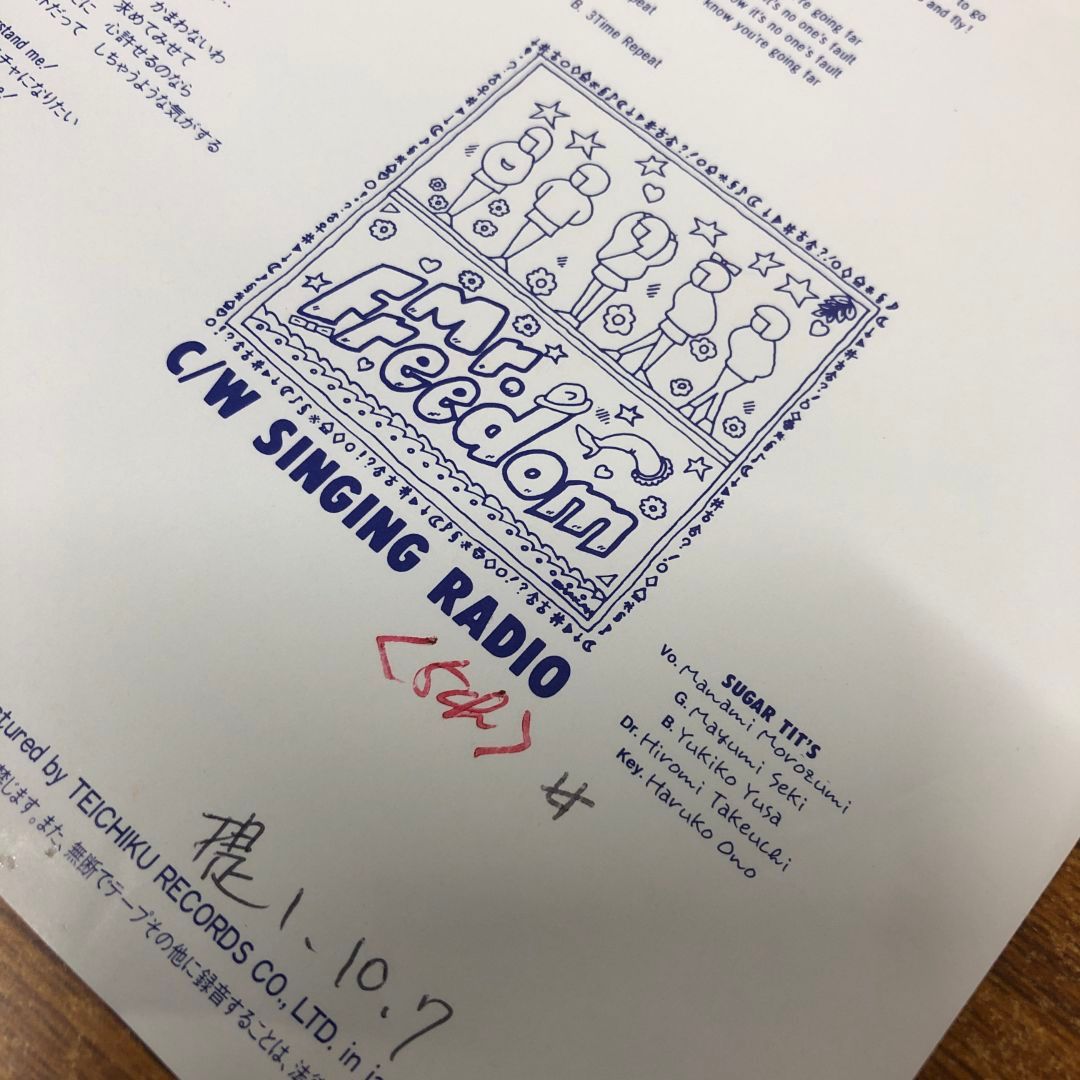 かまわないわ
求めてみせて
心許せるのなら
しちゃうような気がする
stand me!
チャになりたい
e!
to go
and fly!
're going far
ow it's no one's fault
w it's no one's fault
know you're going far
B. 3Time Repeat
Mr.
Freedom
C/W SINGING RADIO
<5ch>
SUGAR TIT'S
Vo. Manami Morozumi
G. Mayumi Seki
B. Yukiko Yusa
Dr. Hiromi Takeuchi
Key. Haruko Ono
ctured by TEICHIKU RECORDS CO., LTD. in ja
禁じます。また、無断でテープその他に録音することは、法
提 1. 10. 7